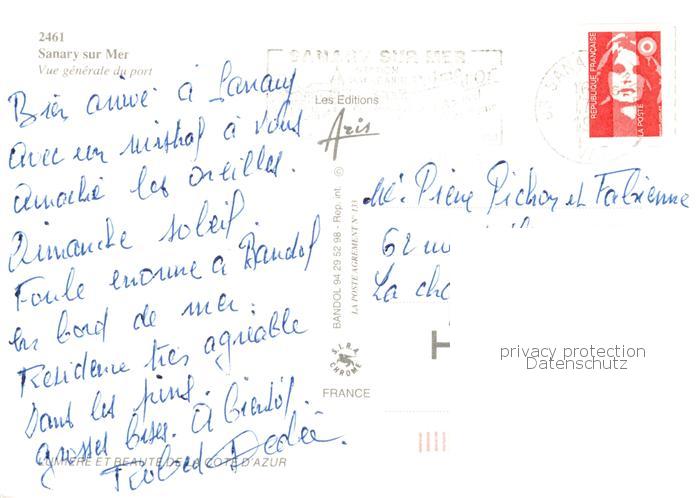 2461
Sanary sur Mer
Vue générale du port
Bien arrivé à Sanary
avec un mistral à vous
arracher les oreilles.
Dimanche soleil.
Foule enorme à Bandol
en bord de mer.
Residence tres agréable
dans les pins.
grosses bises. à bientôt.
LUMIERE ET BEAUTE DE LA COTE D'AZUR
SANARY SUR MER
Les Editions
Aris
BANDOL 94 29 52 98 - Rep. int. ©
LA POSTE AGREMENT N° 133
SIRA
CHROME
FRANCE
REPUBLIQUE FRANÇAISE
LA POSTE
Pierre Pichon et Fabienne
62
La
privacy protection
Datenschutz